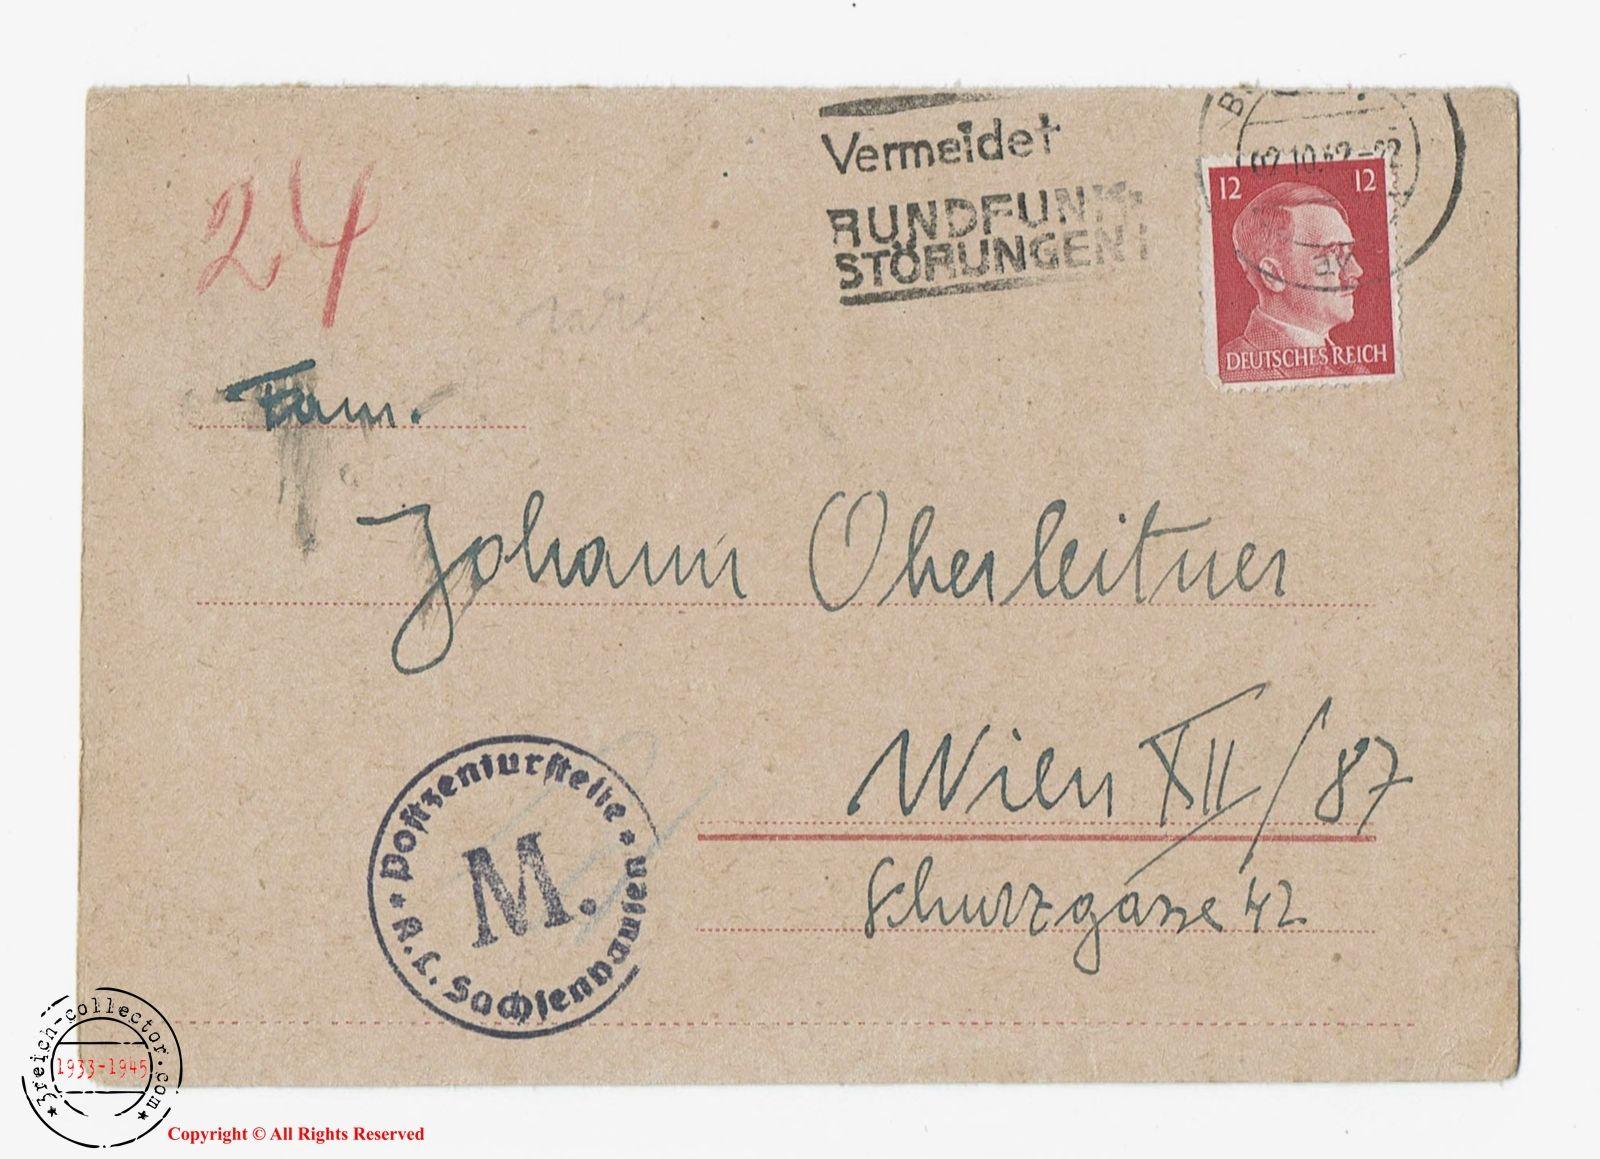 24
Vermeidet
RUNDFUNK-
STÖRUNGEN!
02.10.42-22
12 12
DEUTSCHES REICH
Fam.
Johann Oberleitner
Wien XII/87
Schurzgasse 42
* Postzensurstelle * K.L. Sachsenhausen
M.
* 3reich-collector.com *
1933-1945
Copyright © All Rights Reserved